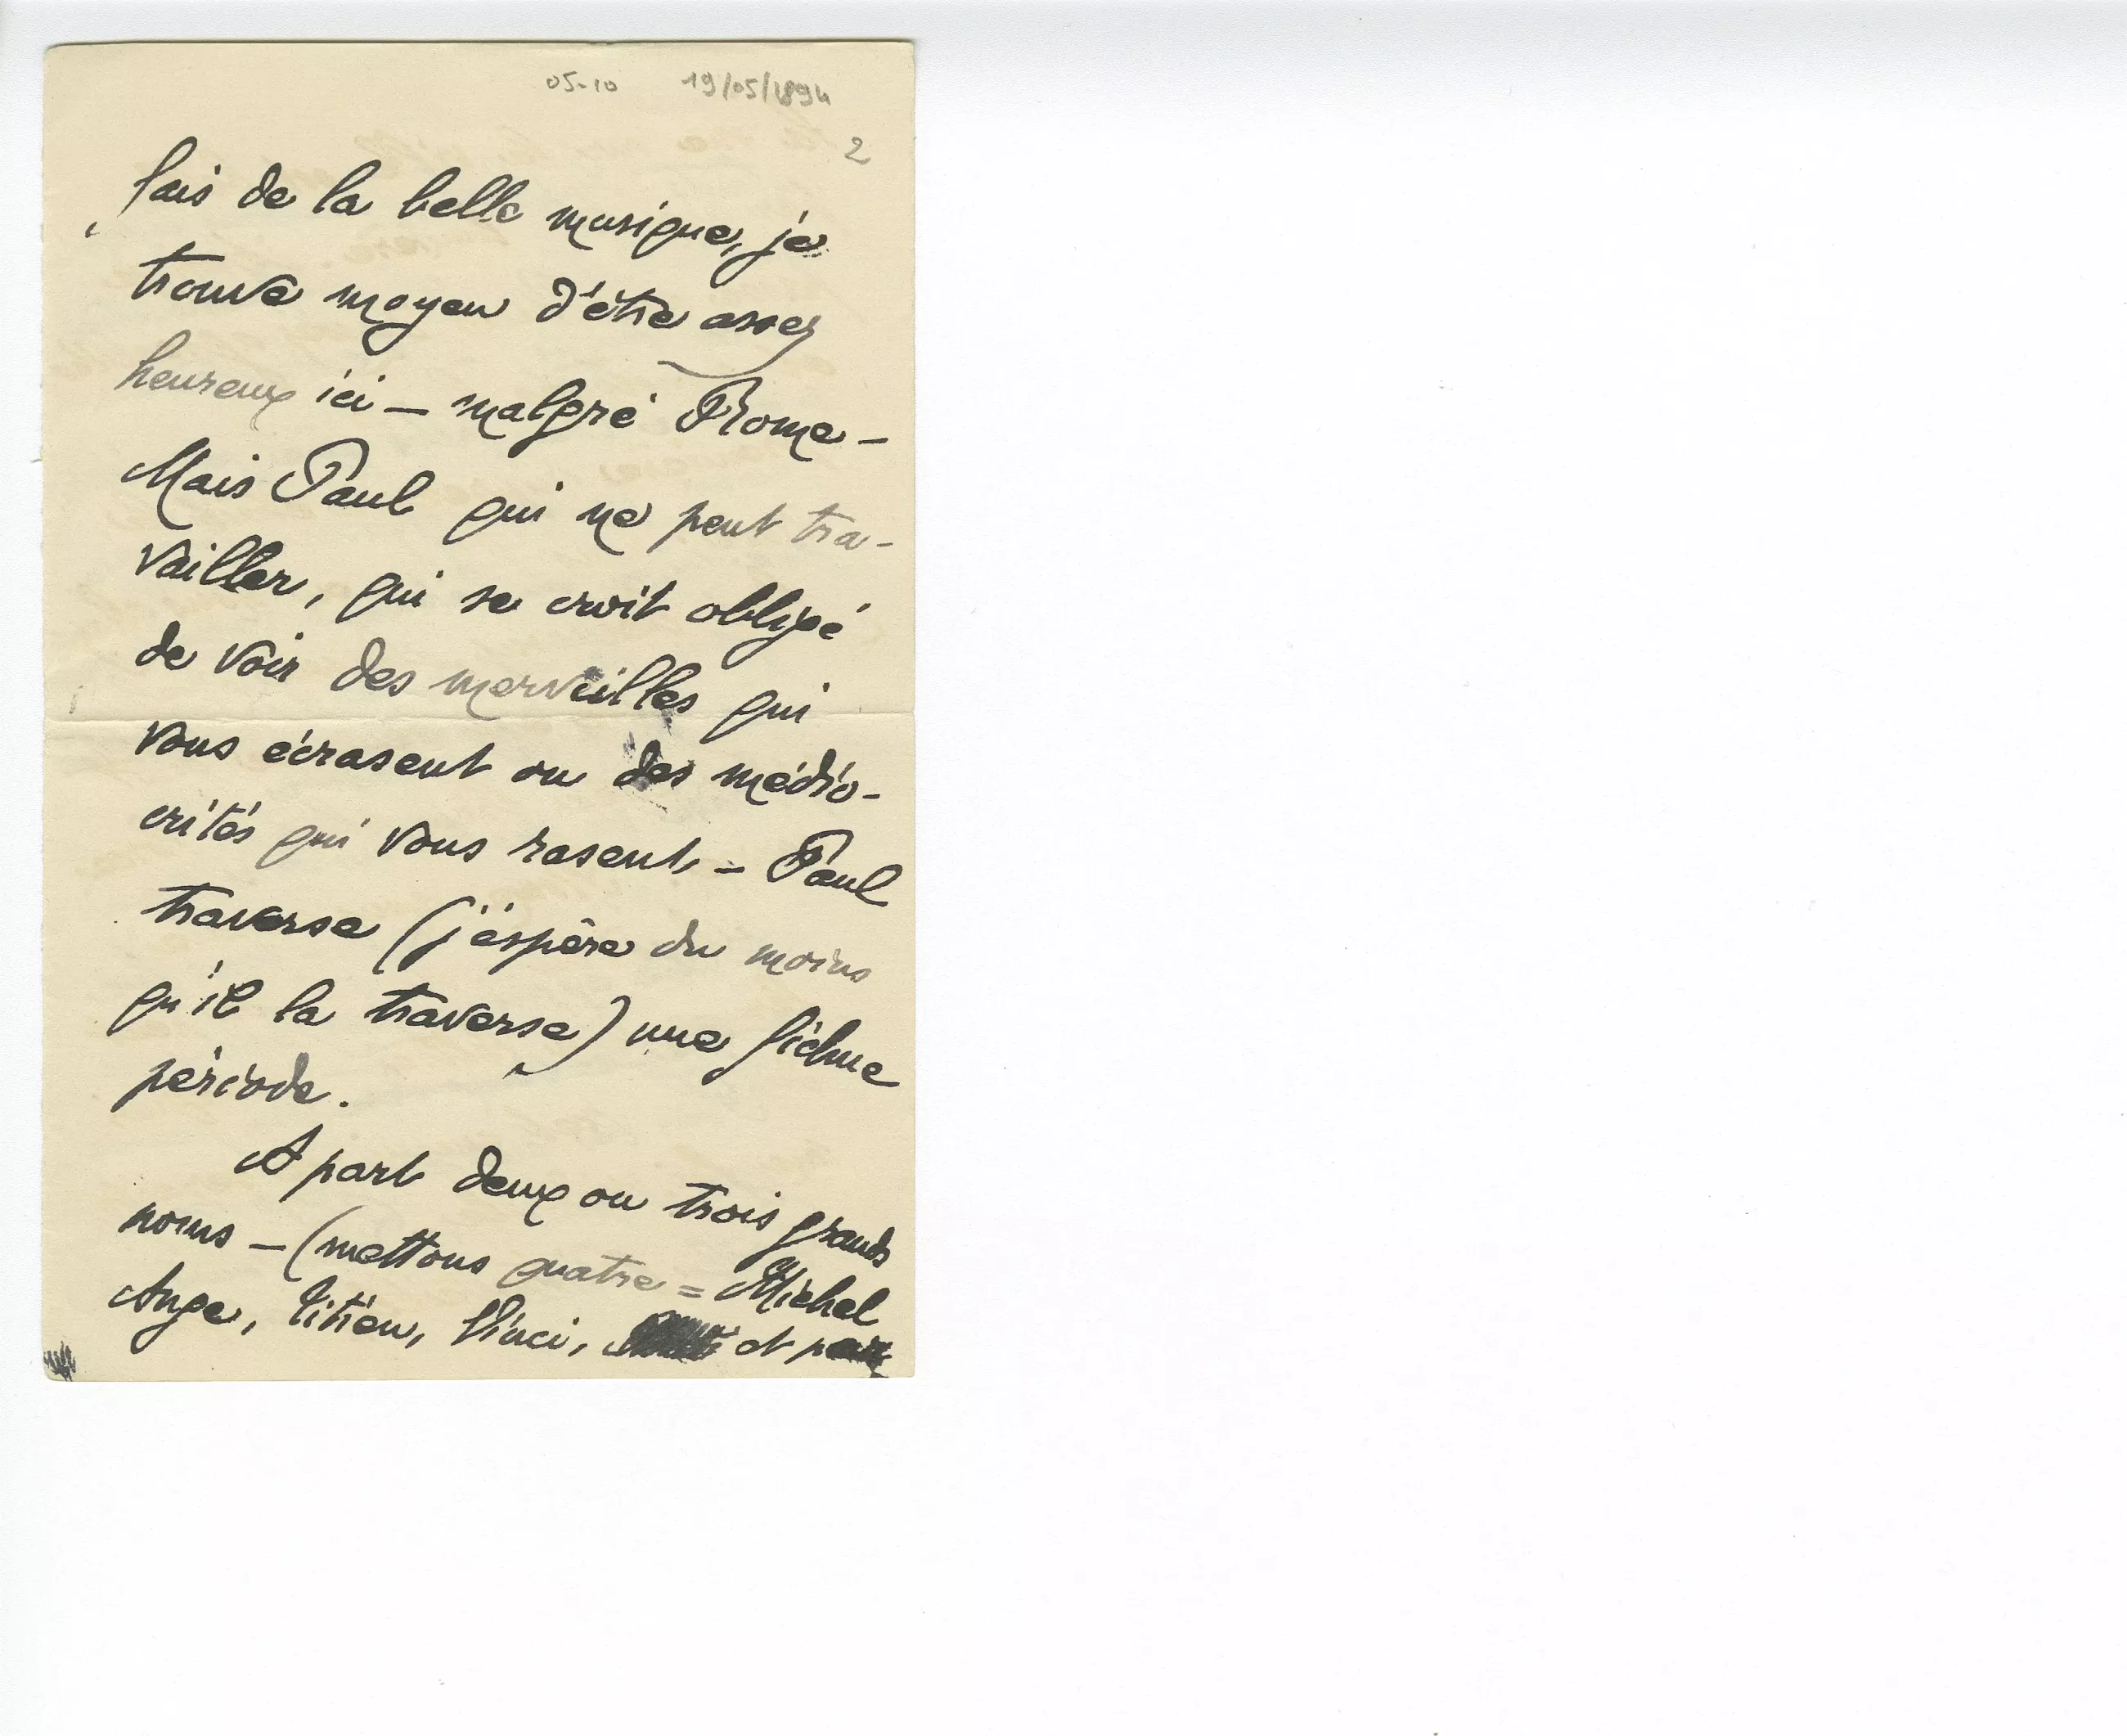 05-10 19/05/1894
2
fais de la belle musique, je
trouve moyen d'être assez
heureux ici — malgré Rome —
Mais Paul qui ne peut tra-
vailler, qui se croit obligé
de voir des merveilles qui
vous écrasent ou des médio-
crités qui vous rasent, — Paul
traverse (j'éspère du moins
qu'il la traverse) une fichue
période.
A part deux ou trois grands
noms — (mettons quatre = Michel
Ange, Titien, Vinci, et par